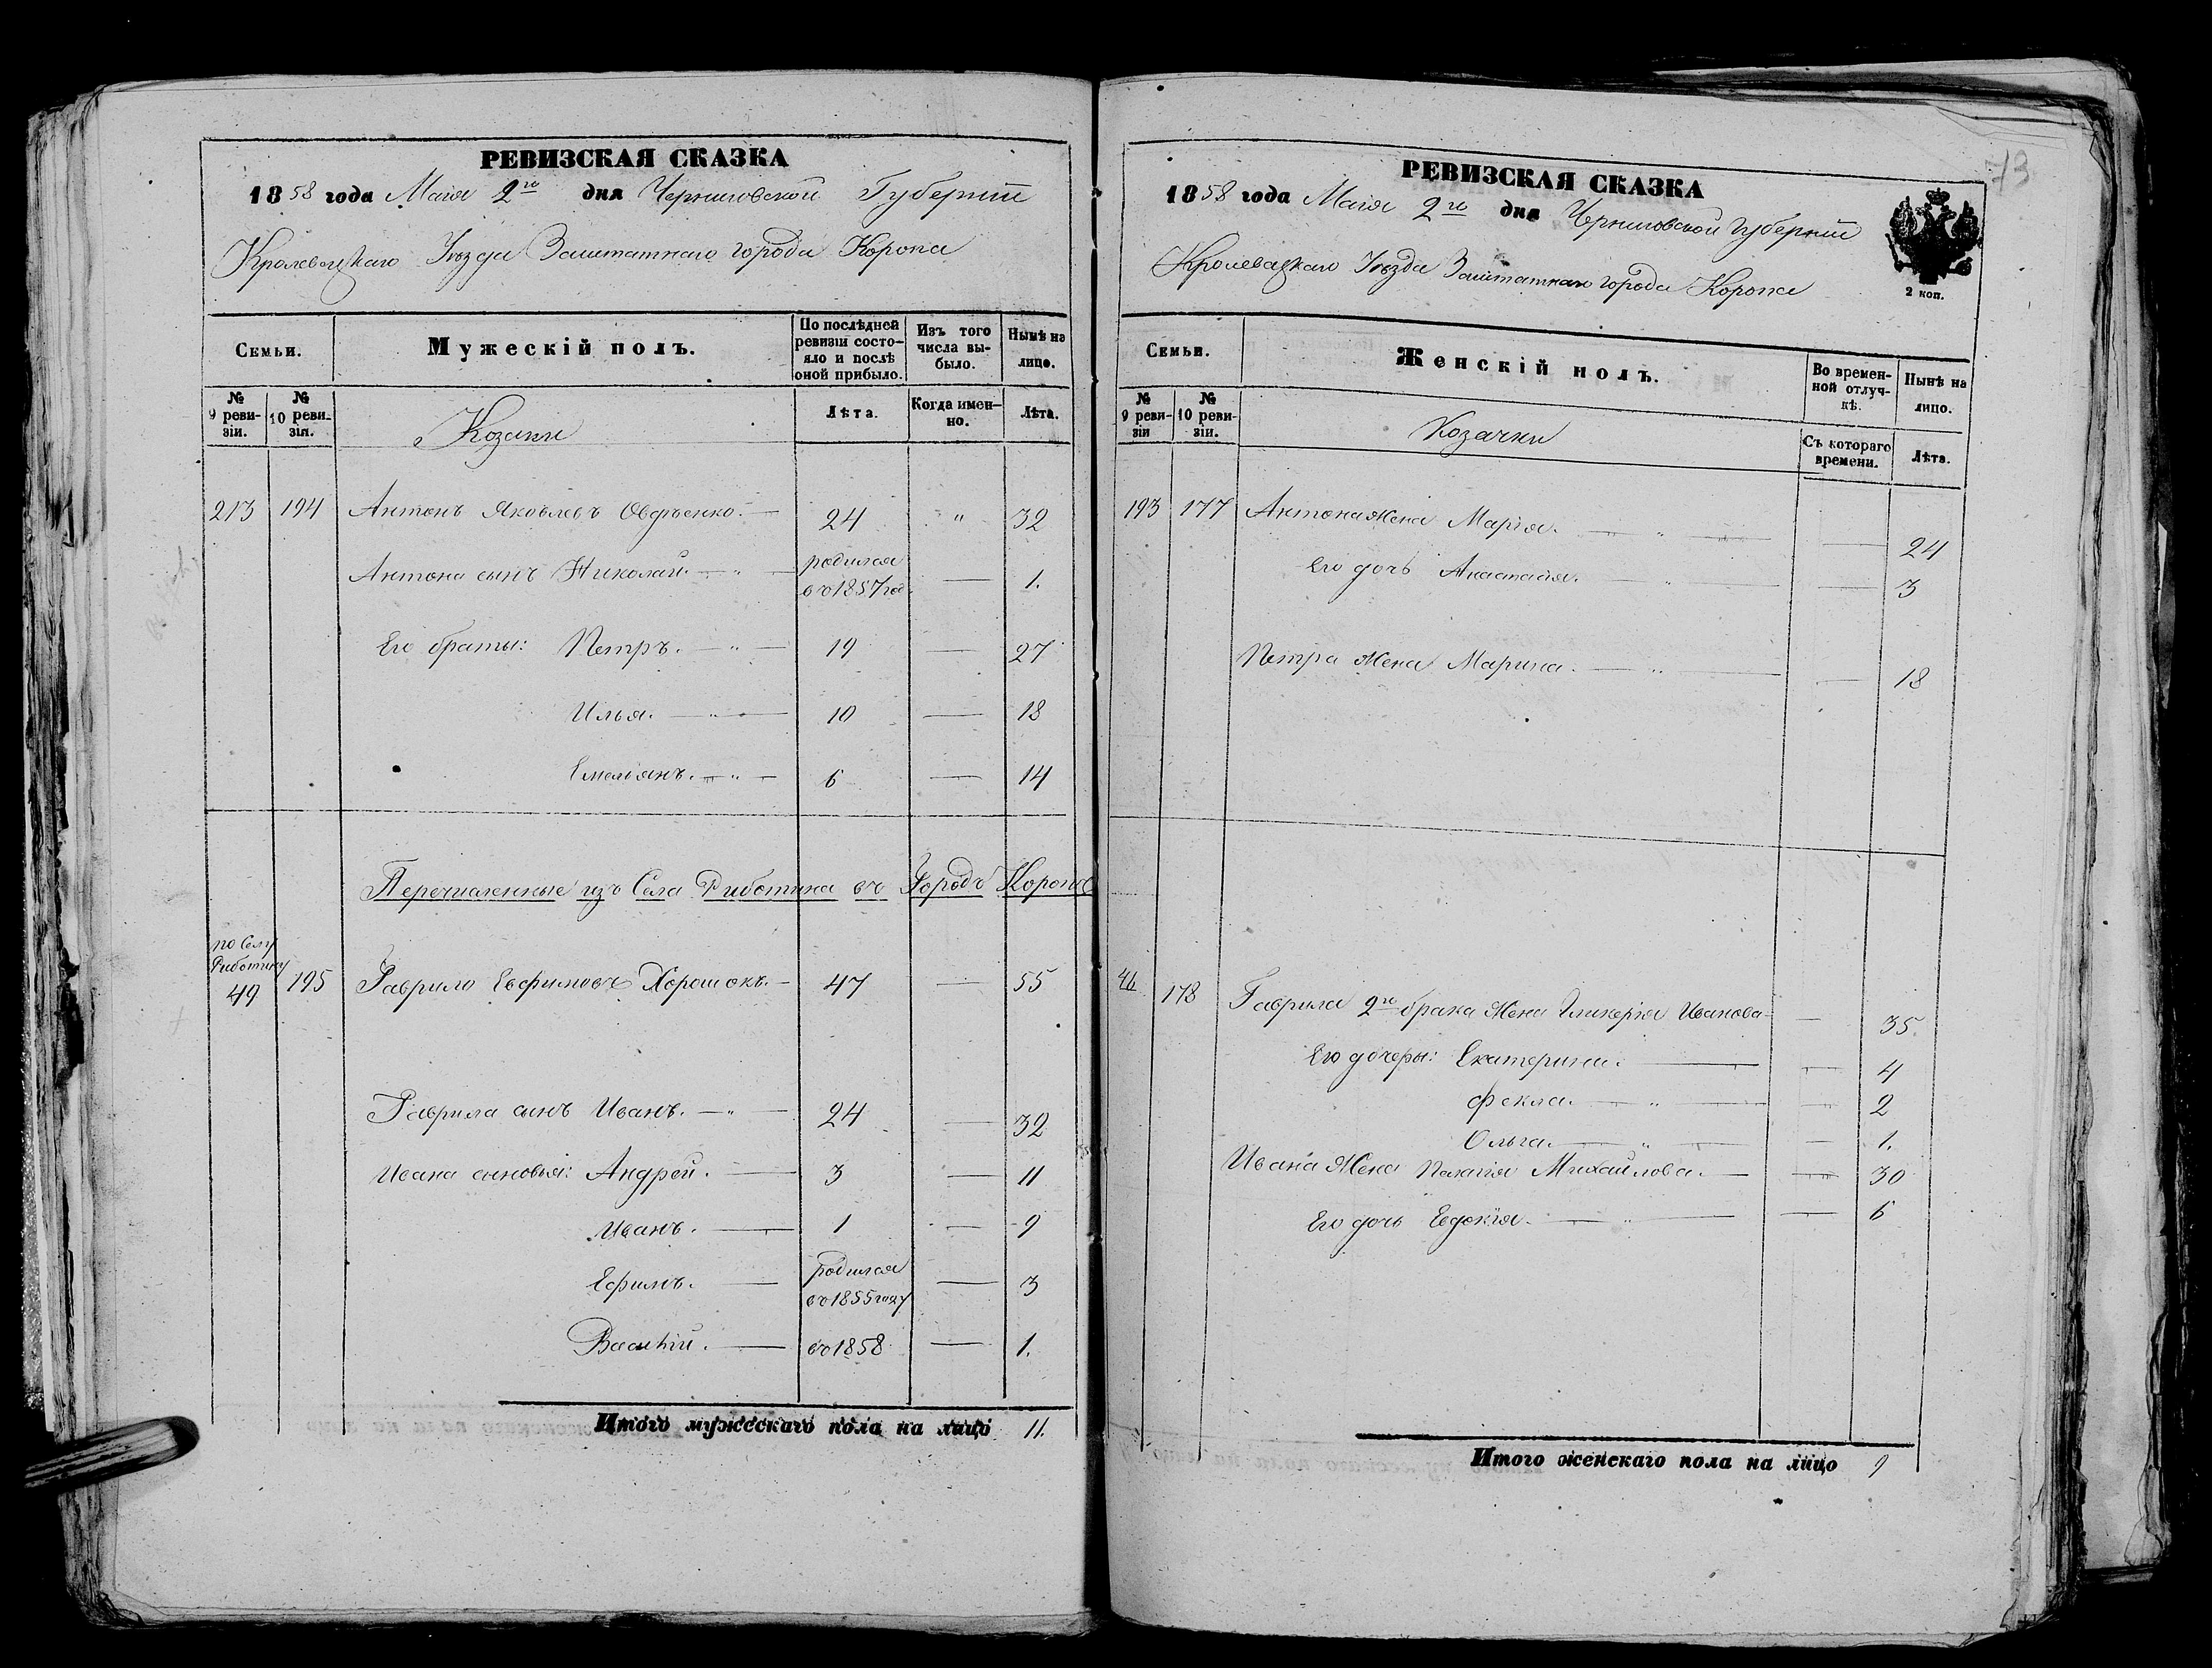 РЕВИЗСКАЯ СКАЗКА
1858 года Маія 2го дня Черниговской Губерніи
Кролевецкаго Уѣзда Заштатнаго города Коропа
Семьи.
Мужескій полъ.
По послѣдней ревизіи состояло и послѣ оной прибыло.
Изъ того числа выбыло.
Нынѣ на лицо.
№ 9 ревизіи.
№ 10 ревизіи.
Козаки
Лѣта.
Когда именно.
Лѣта.
213 194 Антонъ Яковлевъ Овдѣенко. 24 " 32
Антона сынъ Николай. родился въ 1857 год. 1.
Его браты: Петръ. 19 27
Илья. 10 18
Емеліянъ. 6 14
Перечисленные изъ Села Риботина въ Городъ Коропъ
по Селу Риботину
49 195 Гаврило Евфимовъ Хорошокъ. 47 55
Гаврила сынъ Иванъ. 24 32
Ивана сыновья: Андрей. 3 11
Иванъ. 1 9
Ефимъ. родился въ 1855 году 3
Василій. въ 1858 1.
Итого мужескаго пола на лицо 11.
73
РЕВИЗСКАЯ СКАЗКА
1858 года Маія 2го дня Черниговской Губерніи
Кролевецкаго Уѣзда Заштатнаго города Коропа
2 коп.
Семьи.
Женскій полъ.
Во временной отлучкѣ.
Нынѣ на лицо.
№ 9 ревизіи
№ 10 ревизіи.
Козачки
Съ котораго времени.
Лѣта.
193 177 Антона жена Марія. 24
Его дочь Анастасія. 3
Петра жена Марина. 18
46 178 Гаврила 2го брака жена Гликерія Иванова 35.
Его дочеры: Екатерина. 4
Фекла. 2
Ольга. 1.
Ивана жена Пелагія Михайлова. 30
Его дочь Евдокія. 6
Итого женскаго пола на лицо 9